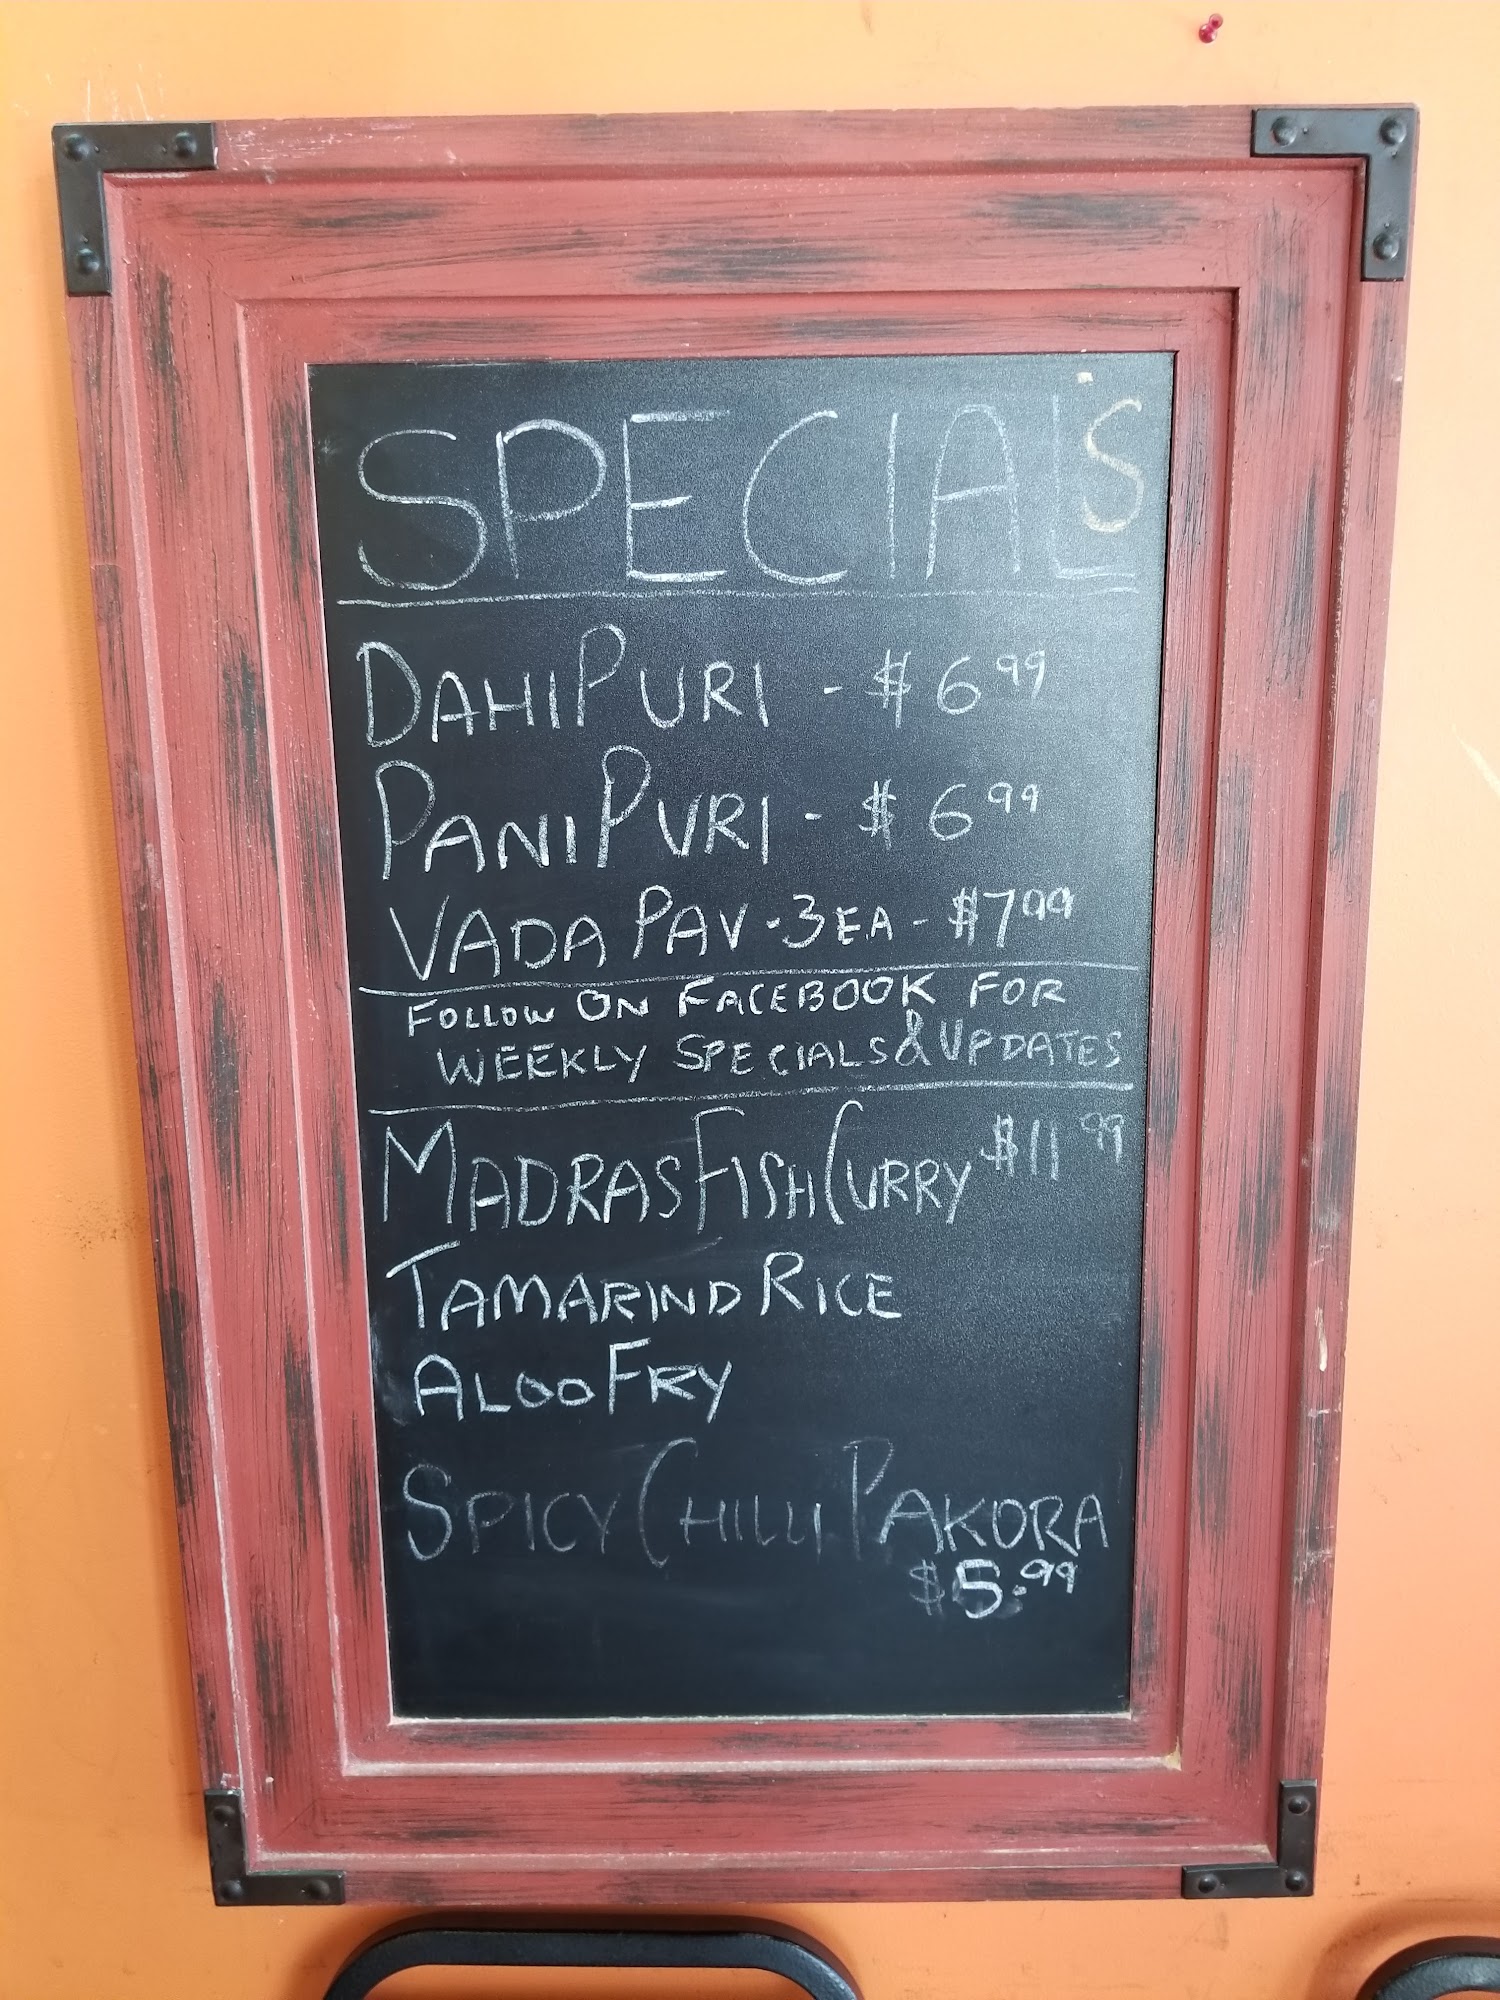 SPECIAL'S
DAHI PURI - $6.99
PANI PURI - $6.99
VADA PAV - 3 EA - $7.99
FOLLOW ON FACEBOOK FOR
WEEKLY SPECIALS & UPDATES
MADRAS FISH CURRY $11.99
TAMARIND RICE
ALOO FRY
SPICY CHILLI PAKORA
$5.99